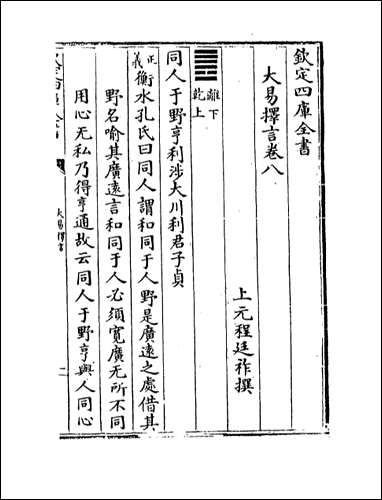 欽定四庫全書
大易擇言卷八
上元程廷祚撰
離下
乾上
同人于野亨利涉大川利君子貞
正義衡水孔氏曰同人謂和同于人野是廣遠之處借其
野名喻其廣遠言和同于人必須寬廣无所不同
用心无私乃得亨通故云同人于野亨與人同心
大易擇言